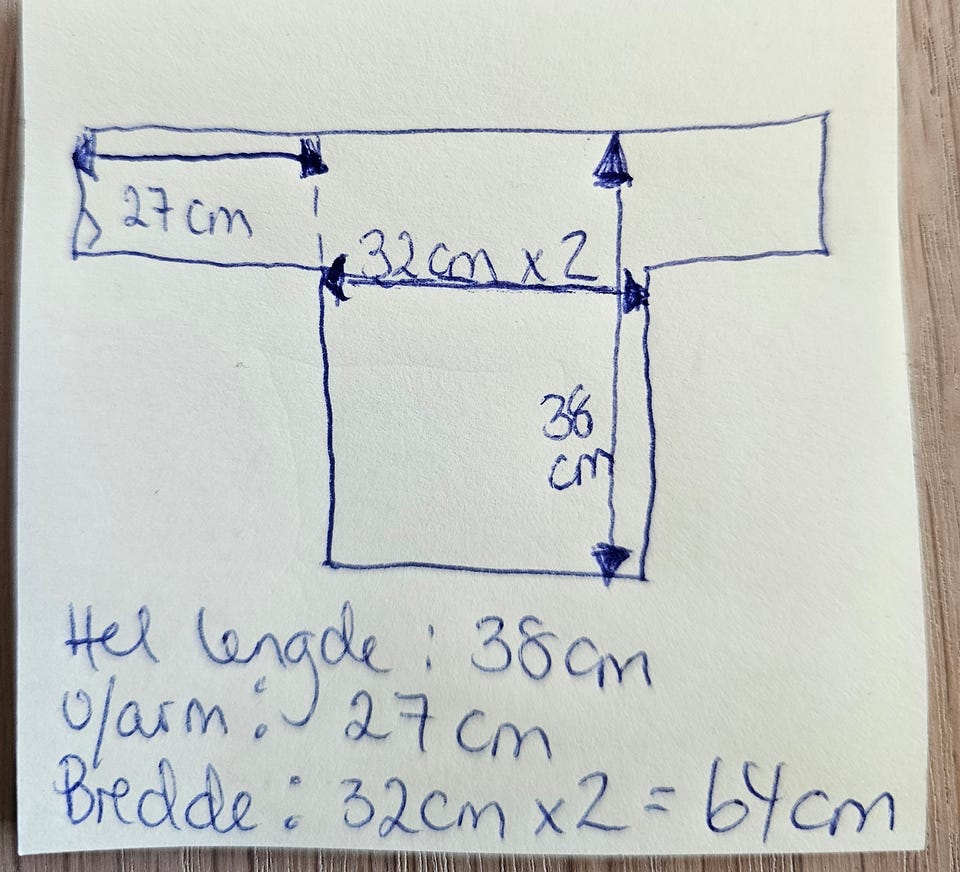 27 cm
32 cm x 2
38
cm
Hel lengde: 38 cm
u/arm: 27 cm
Bredde: 32cm x 2 = 64 cm